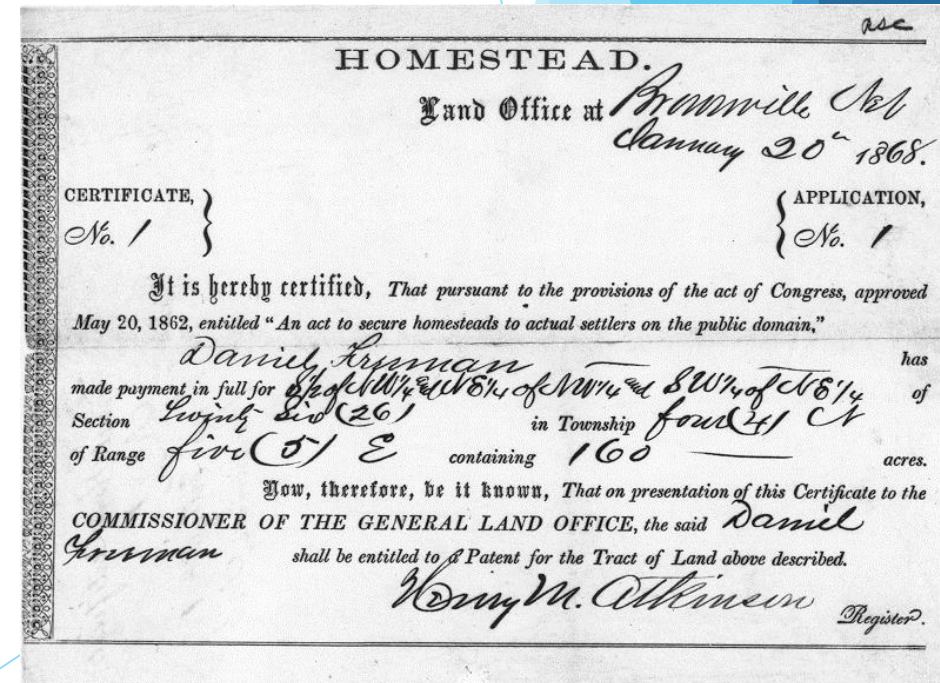 asc
HOMESTEAD.
Land Office at Brownville Neb
January 20th 1868.
CERTIFICATE,
No. 1
APPLICATION,
No. 1
It is hereby certified, That pursuant to the provisions of the act of Congress, approved
May 20, 1862, entitled “An act to secure homesteads to actual settlers on the public domain,”
Daniel Freeman has
made payment in full for S½ of NW¼ and NE¼ of NW¼ and SW¼ of NE¼ of
Section Twenty six (26) in Township four (4) N
of Range five (5) E containing 160 acres.
Now, therefore, be it known, That on presentation of this Certificate to the
COMMISSIONER OF THE GENERAL LAND OFFICE, the said Daniel
Freeman shall be entitled to a Patent for the Tract of Land above described.
Henry M. Atkinson
Register.